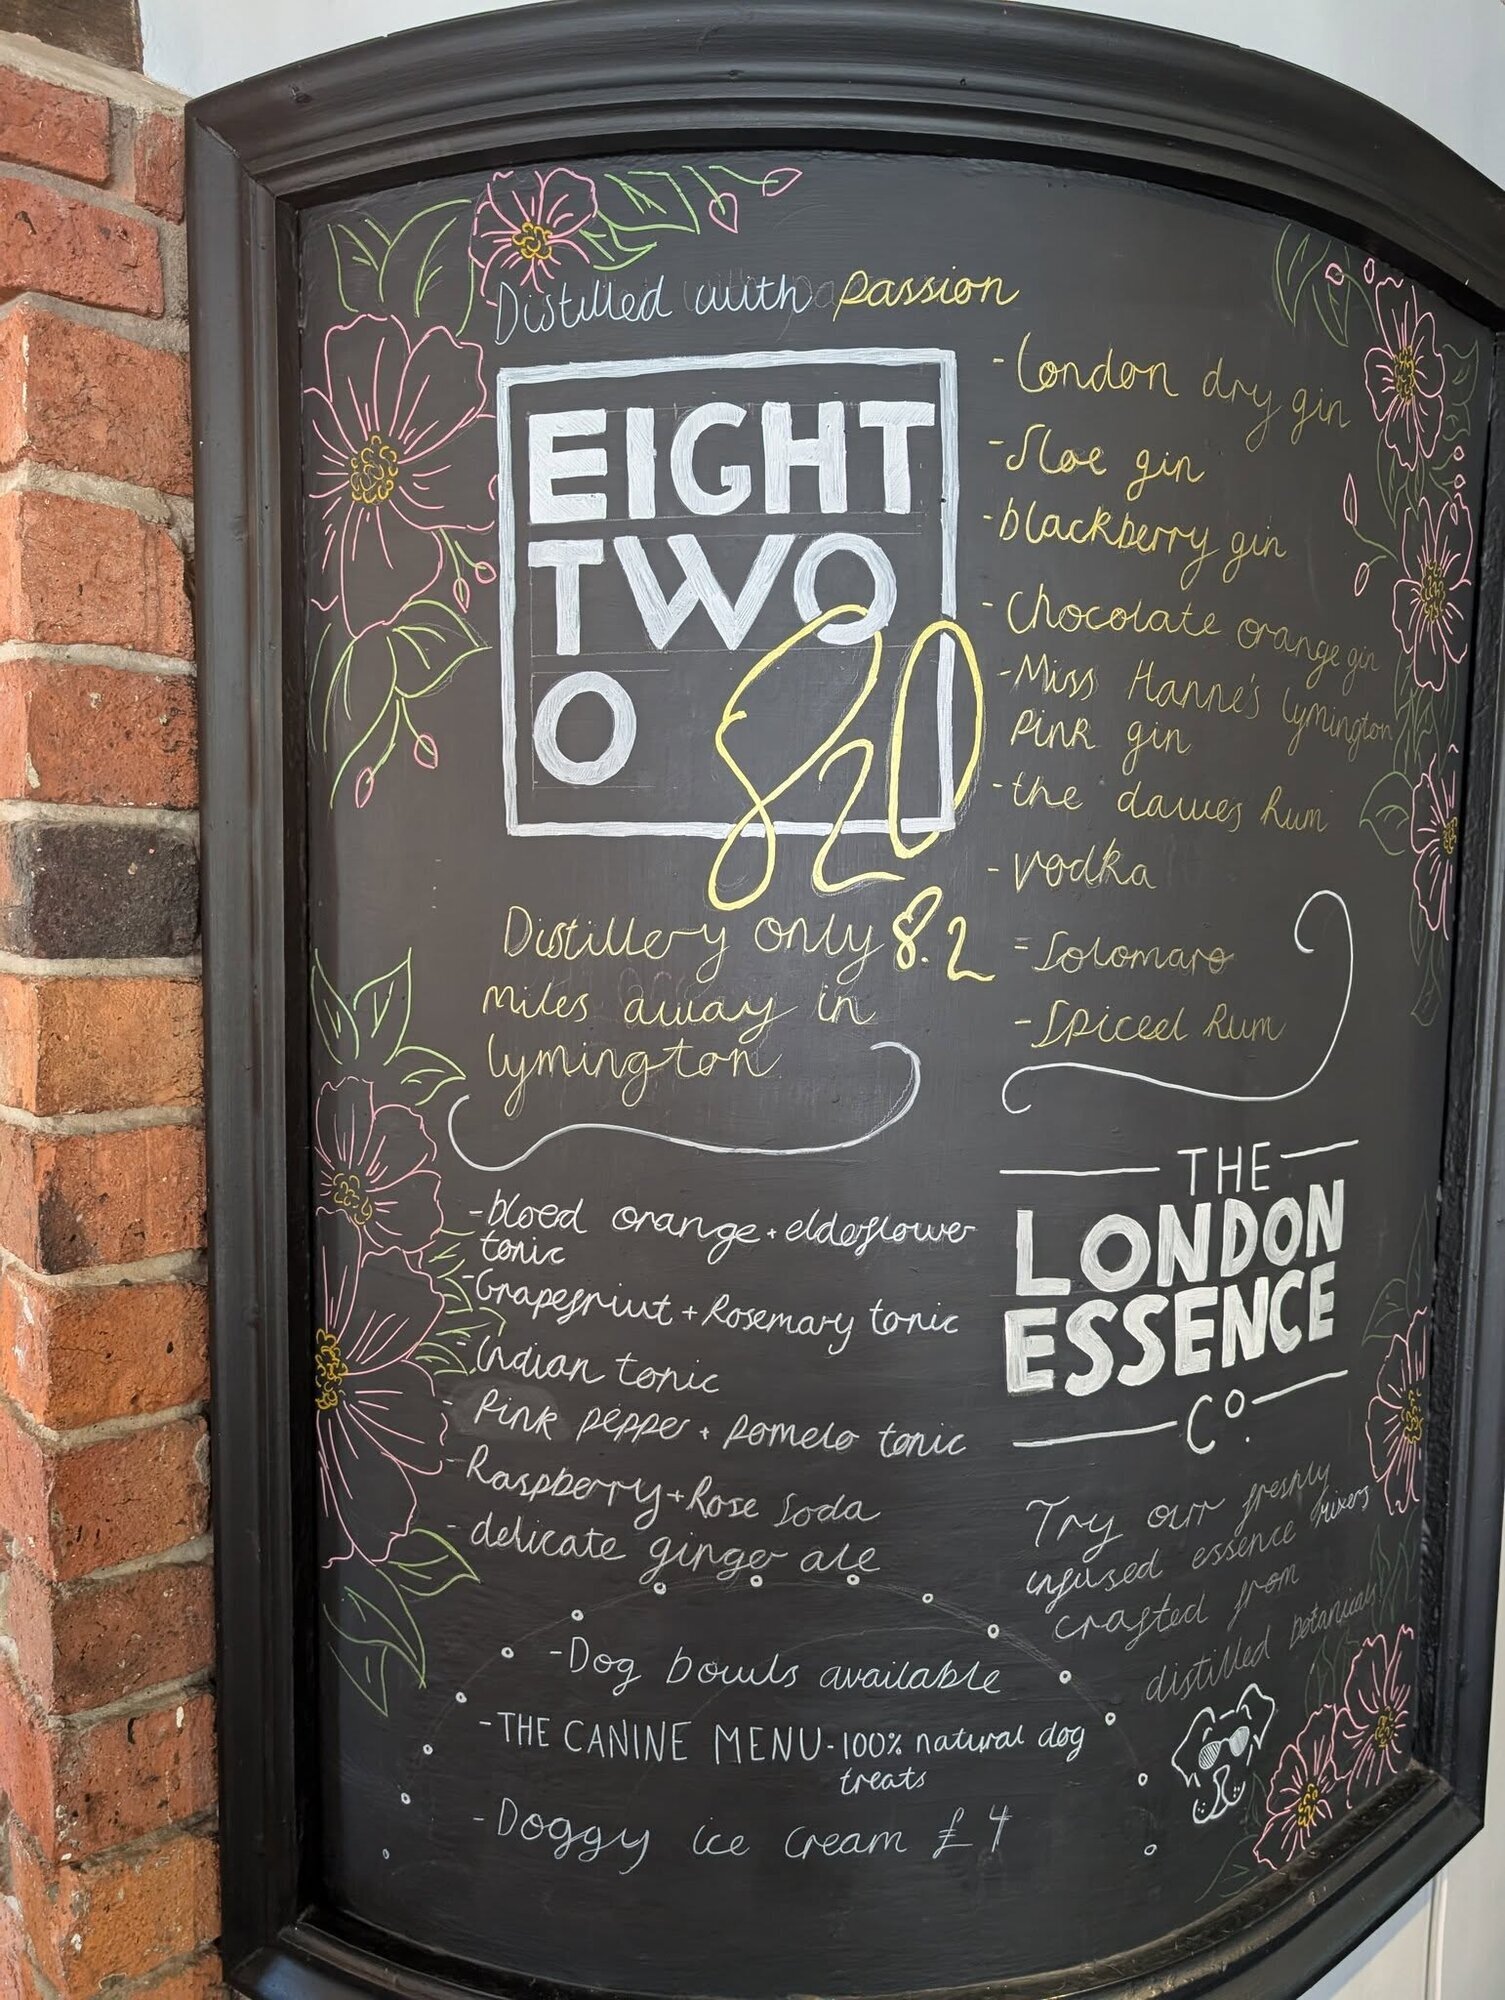 Distilled with passion
EIGHT
TWO
O
820
Distillery only 8.2
miles away in
lymington
- London dry gin
- Sloe gin
- blackberry gin
- Chocolate orange gin
- Miss Hanne's lymington
pink gin
- the dawes Rum
- vodka
- Solomaro
- Spiced Rum
THE
LONDON
ESSENCE
Co.
Try our freshly
infused essence mixers
crafted from
distilled botanicals
- bloed orange + elderflower
tonic
- Grapefruit + Rosemary tonic
- Indian tonic
- Pink pepper + pomelo tonic
- Raspberry + Rose Soda
- delicate ginger ale
- Dog bowls available
- THE CANINE MENU - 100% natural dog
treats
- Doggy ice cream £4